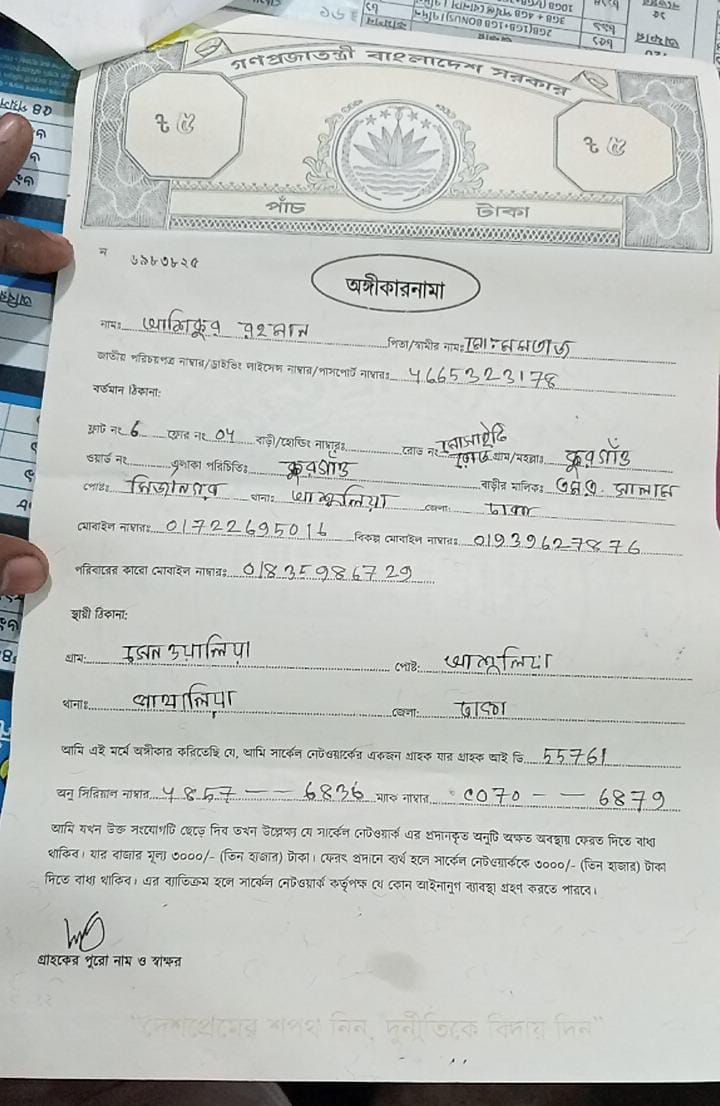 গণপ্রজাতন্ত্রী বাংলাদেশ সরকার
৳ ৫ ৳ ৫
পাঁচ টাকা
ন ৬৯৮৩৮২৫
অঙ্গীকারনামা
নামঃ আশিকুর রহমান পিতা/স্বামীর নামঃ মোঃ মমতাজ
জাতীয় পরিচয়পত্র নাম্বার/ড্রাইভিং লাইসেন্স নাম্বার/পাসপোর্ট নাম্বারঃ 4665323178
বর্তমান ঠিকানা:
ফ্লাট নং 6 ফ্লোর নং 04 বাড়ী/হোল্ডিং নাম্বারঃ রোড নং সোসাইটি রোড গ্রাম/মহল্লাঃ কুরগাঁও
ওয়ার্ড নং এলাকা পরিচিতিঃ কুরগাঁও বাড়ীর মালিকঃ এম.এ. সালাম
পোষ্টঃ মির্জানগর থানাঃ আশুলিয়া জেলা: ঢাকা
মোবাইল নাম্বারঃ 01722695016 বিকল্প মোবাইল নাম্বারঃ 01939627876
পরিবারের কারো মোবাইল নাম্বারঃ 01835986729
স্থায়ী ঠিকানা:
গ্রাম: পোষ্ট: আশুলিয়া
থানাঃ জেলা: ঢাকা
আমি এই মর্মে অঙ্গীকার করিতেছি যে, আমি সার্কেল নেটওয়ার্কের একজন গ্রাহক যার গ্রাহক আই ডি 55761
অনু সিরিয়াল নাম্বার 4857 -- 6836 ম্যাক নাম্বার C070 -- 6879
আমি যখন উক্ত সংযোগটি ছেড়ে দিব তখন উল্লেক্ষ্য যে সার্কেল নেটওয়ার্ক এর প্রদানকৃত অনুটি অক্ষত অবস্থায় ফেরত দিতে বাধ্য
থাকিব। যার বাজার মূল্য ৩০০০/- (তিন হাজার) টাকা। ফেরৎ প্রদানে ব্যর্থ হলে সার্কেল নেটওয়ার্ককে ৩০০০/- (তিন হাজার) টাকা
দিতে বাধ্য থাকিব। এর ব্যাতিক্রম হলে সার্কেল নেটওয়ার্ক কর্তৃপক্ষ যে কোন আইনানুগ ব্যবস্থা গ্রহণ করতে পারবে।
গ্রাহকের পুরো নাম ও স্বাক্ষর
"দেশপ্রেমের শপথ নিন, দুর্নীতিকে বিদায় দিন"